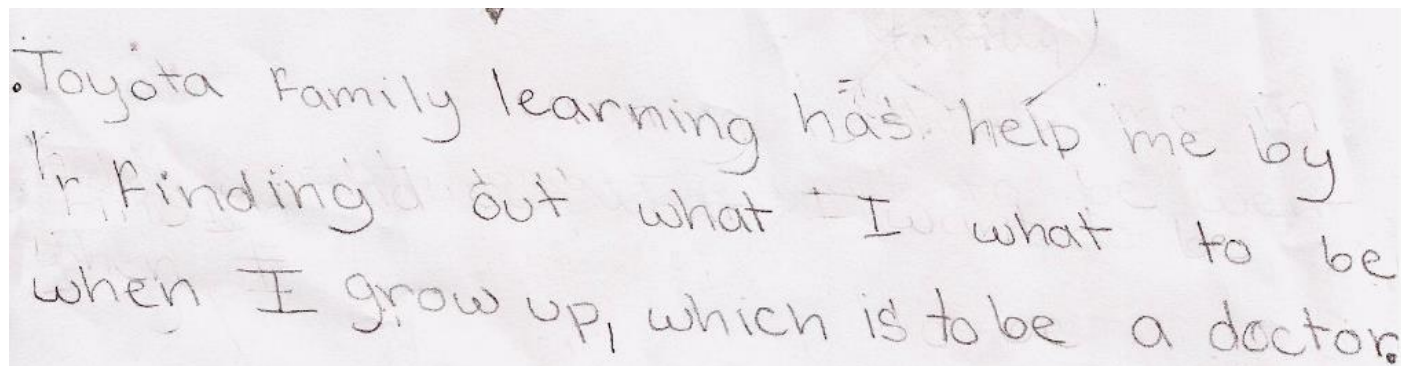 .Toyota Family learning has help me by
finding out what I what to be
when I grow up, which is to be a doctor.